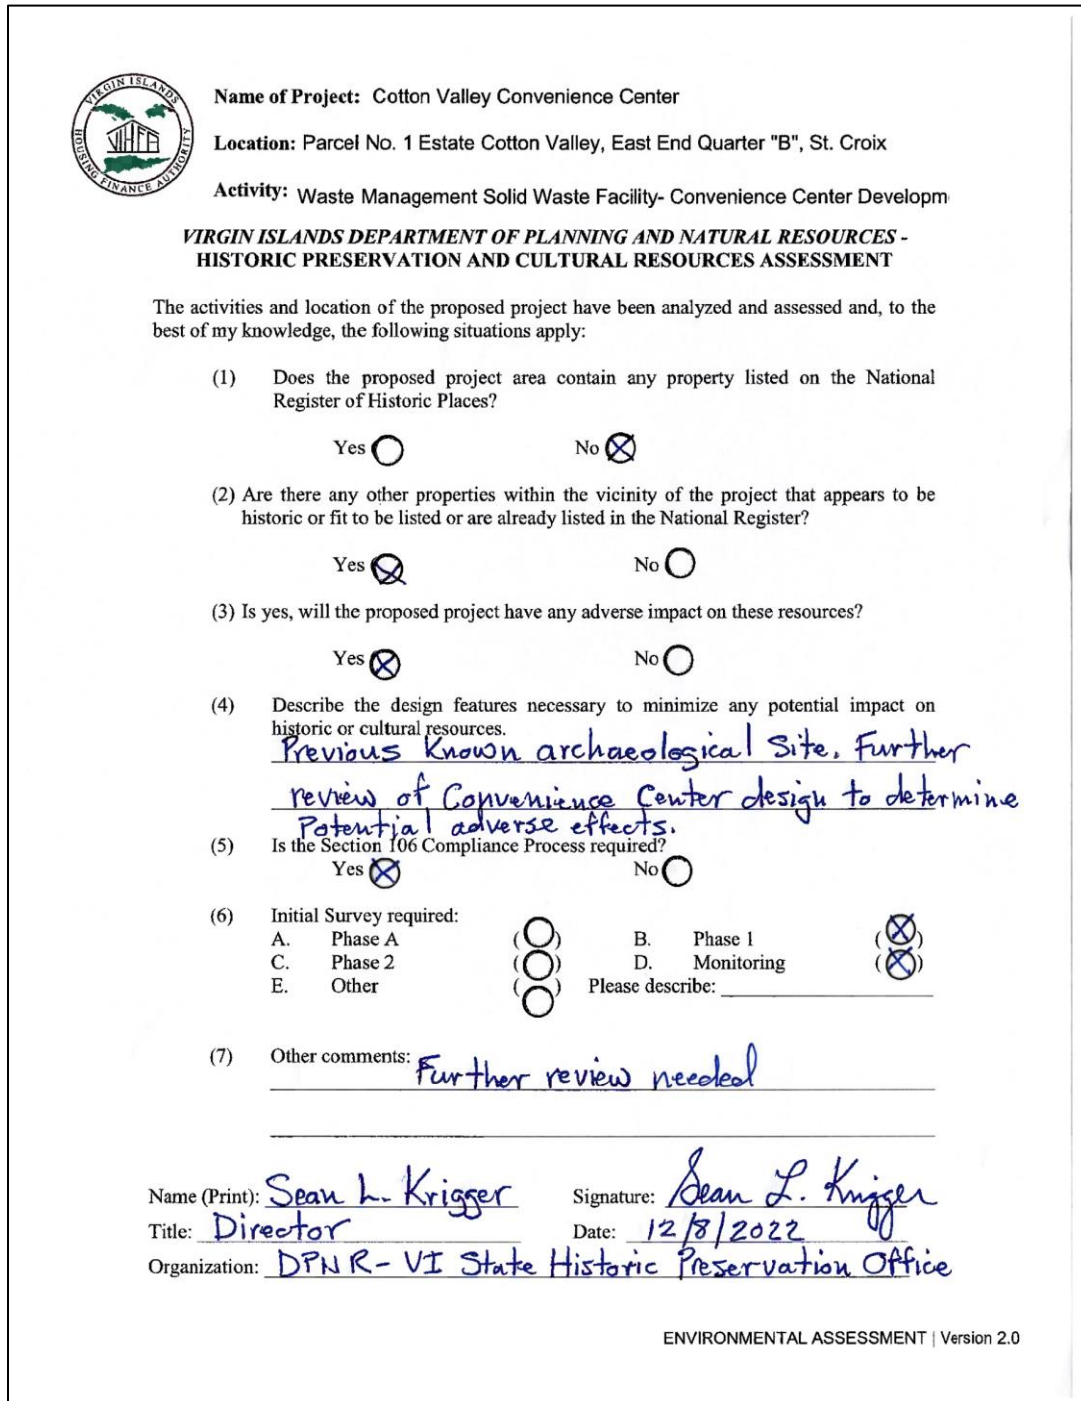 VIRGIN ISLANDS
HOUSING FINANCE AUTHORITY
VIHFA
Name of Project: Cotton Valley Convenience Center
Location: Parcel No. 1 Estate Cotton Valley, East End Quarter "B", St. Croix
Activity: Waste Management Solid Waste Facility- Convenience Center Developm
VIRGIN ISLANDS DEPARTMENT OF PLANNING AND NATURAL RESOURCES -
HISTORIC PRESERVATION AND CULTURAL RESOURCES ASSESSMENT
The activities and location of the proposed project have been analyzed and assessed and, to the
best of my knowledge, the following situations apply:
(1) Does the proposed project area contain any property listed on the National
Register of Historic Places?
Yes No
(2) Are there any other properties within the vicinity of the project that appears to be
historic or fit to be listed or are already listed in the National Register?
Yes No
(3) Is yes, will the proposed project have any adverse impact on these resources?
Yes No
(4) Describe the design features necessary to minimize any potential impact on
historic or cultural resources.
Previous Known archaeological Site. Further
review of Convenience Center design to determine
Potential adverse effects.
(5) Is the Section 106 Compliance Process required?
Yes No
(6) Initial Survey required:
A. Phase A ( ) B. Phase 1 ( )
C. Phase 2 ( ) D. Monitoring ( )
E. Other ( ) Please describe:
(7) Other comments: Further review needed
Name (Print): Sean L. Krigger Signature: Sean L. Krigger
Title: Director Date: 12/8/2022
Organization: DPNR- VI State Historic Preservation Office
ENVIRONMENTAL ASSESSMENT | Version 2.0